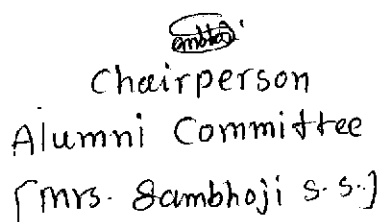 Chairperson
Alumni Committee
[Mrs. Sambhoji S.S.]